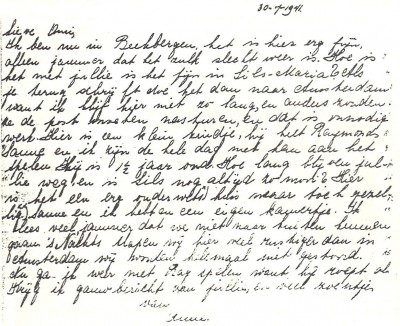 30-7-1941
Lieve Omi,
Ik ben nu in Beekbergen, het is hier erg fijn,
alleen jammer dat het zulk slecht weer is. Hoe is
het met jullie is het fijn in Sils-Maria? Als
je terug schrijft doe het dan naar Amsterdam
want ik blijf hier niet zo lang, en anders zouden
ze de post moeten nasturen, en dat is onnodig
werk. Hier is een klein kindje, hij heet Raymond,
Sanne en ik zijn de hele dag met hem aan het
spelen. Hij is 1½ jaar oud. Hoe lang blijven jul-
lie weg en is Sils nog altijd zo mooi? Hier
is het een erg ouderwets huis maar toch gezel-
lig, Sanne en ik hebben een eigen kamertje. Ik
lees veel, jammer dat we niet naar buiten kunnen
gaan. 's Nachts slapen wij hier veel rustiger dan in
Amsterdam wij worden helemaal niet gestoord.
Nu ga ik weer met Ray spelen want hij roept al.
Krijg ik gauw bericht van jullie, en veel zoentjes
van
Anne.